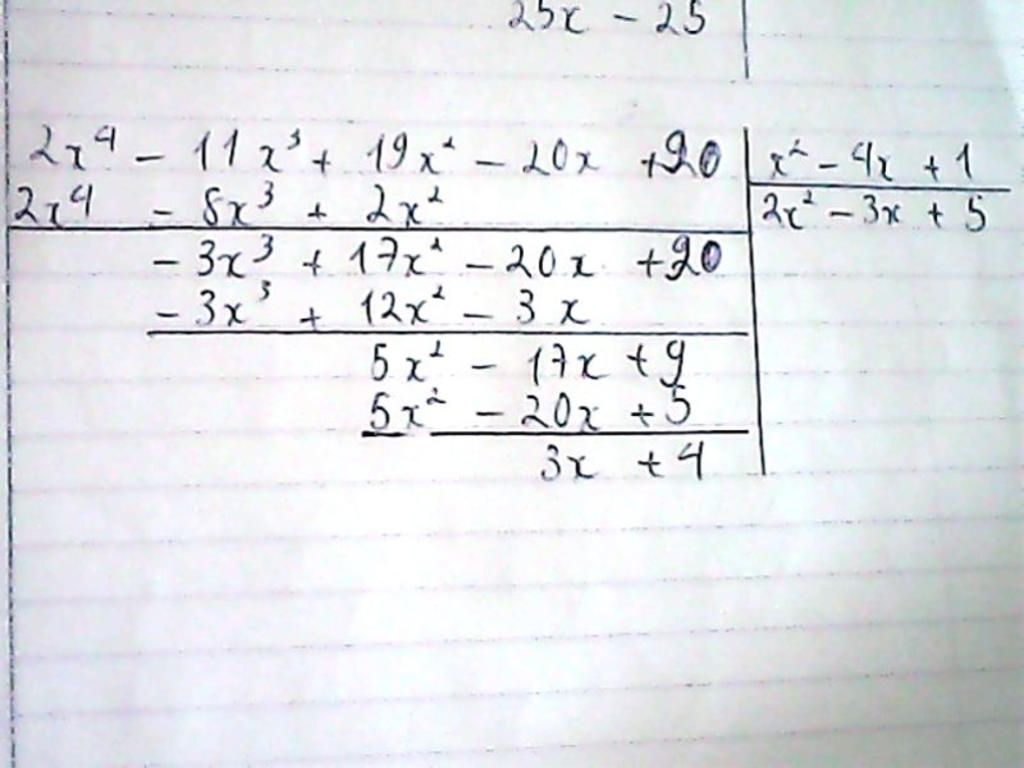 25x - 25
2x⁴ - 11x³ + 19x² - 20x + 20 | x² - 4x + 1
2x⁴ - 8x³ + 2x² | 2x² - 3x + 5
- 3x³ + 17x² - 20x + 20
- 3x³ + 12x² - 3x
5x² - 17x + 9
5x² - 20x + 5
3x + 4